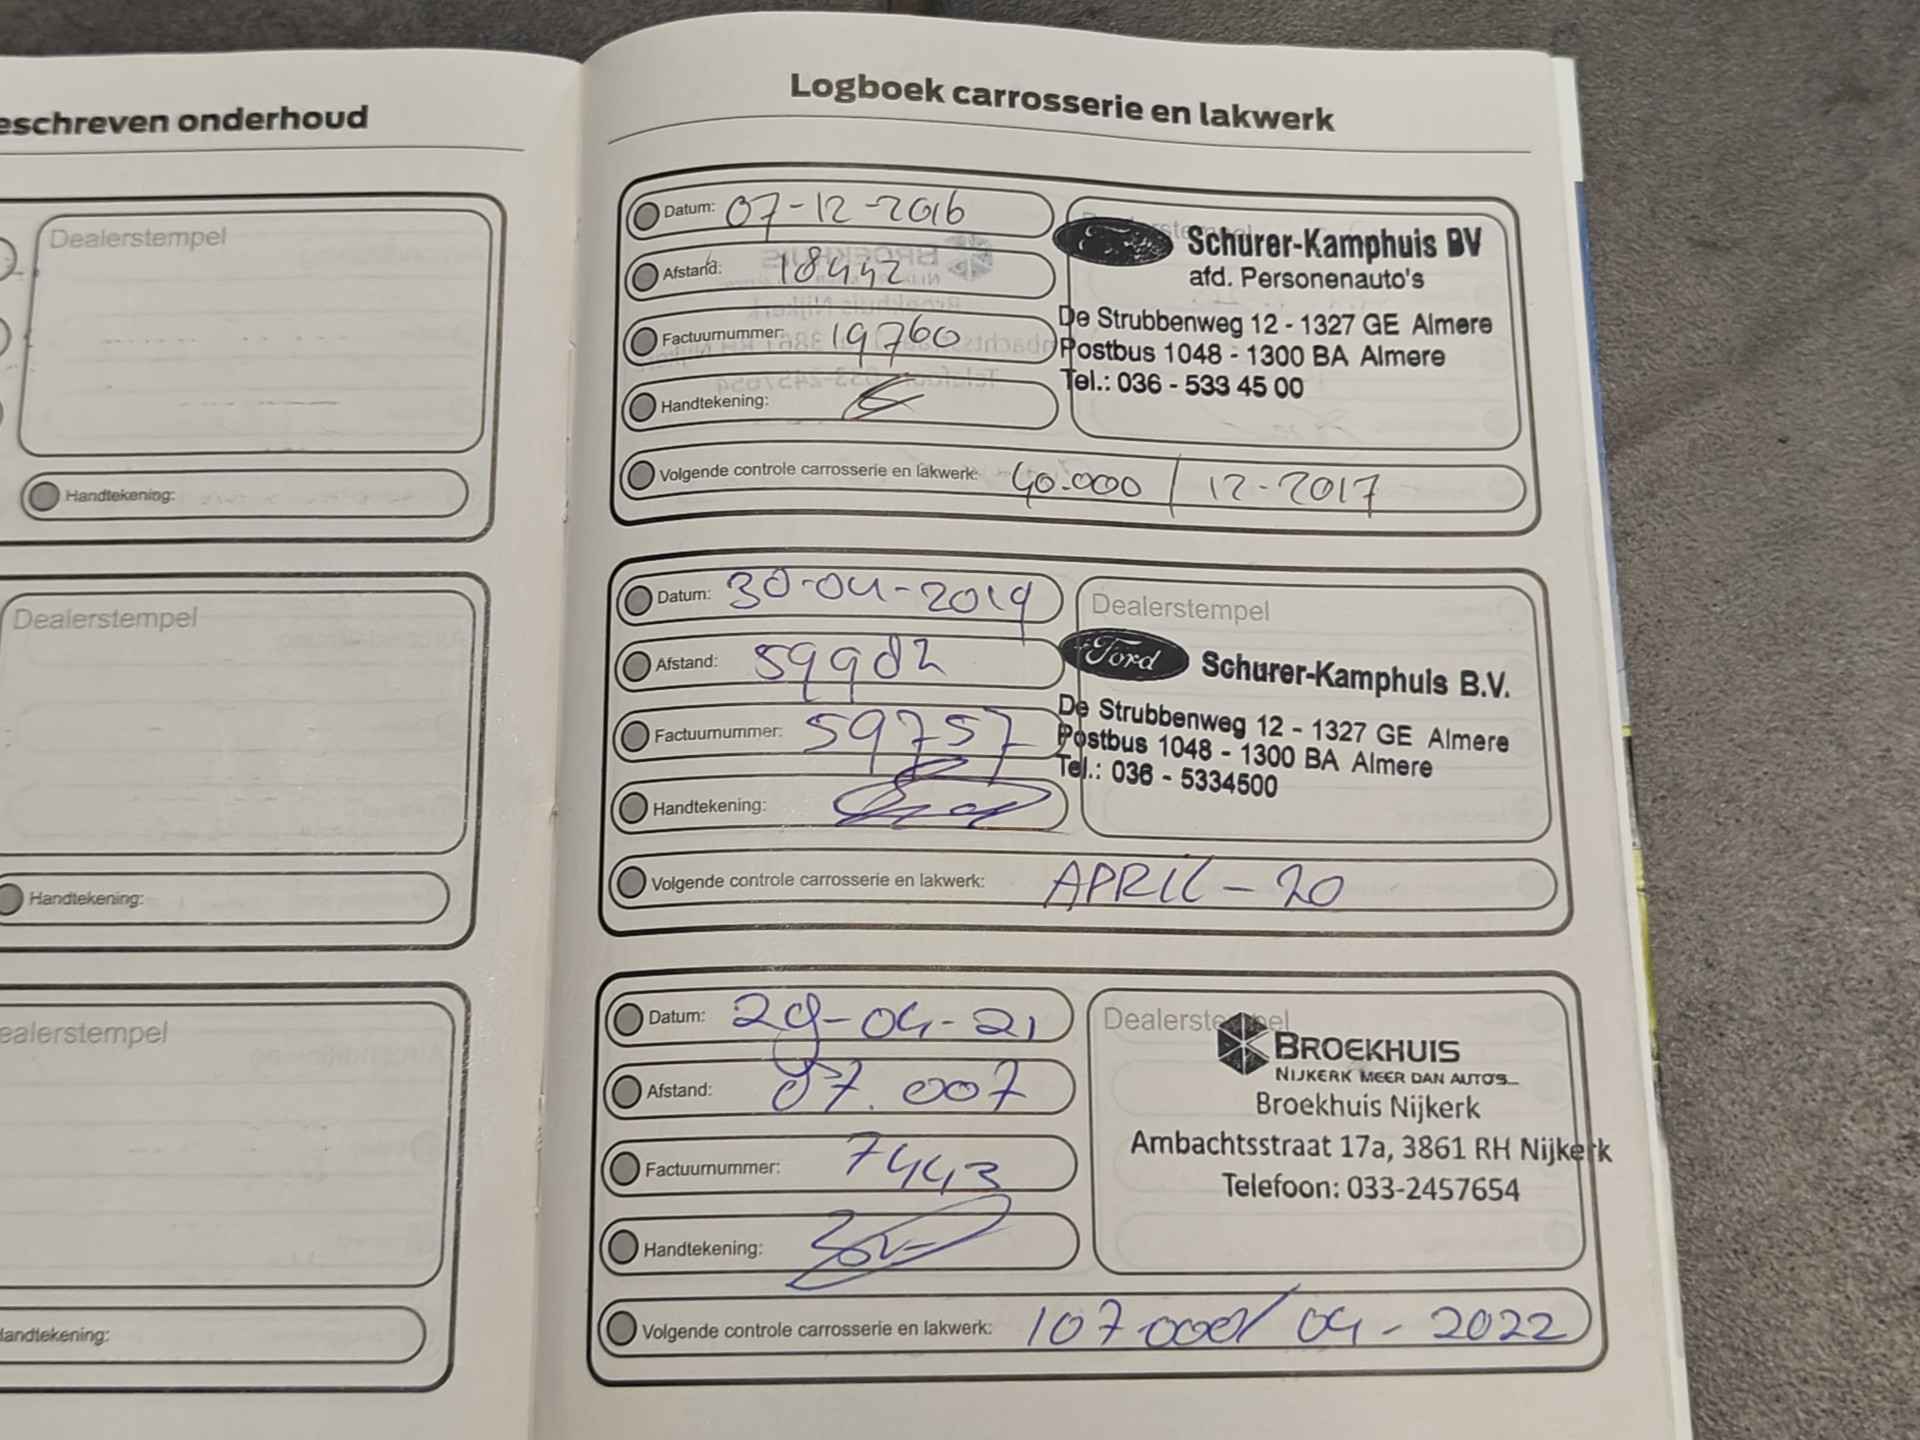 eschreven onderhoud
Dealerstempel
Handtekening:
Dealerstempel
Handtekening:
ealerstempel
landtekening:
Logboek carrosserie en lakwerk
Datum: 07-12-2016
Afstand: 18442
Factuurnummer: 19760
Handtekening:
Schurer-Kamphuis BV
afd. Personenauto's
De Strubbenweg 12 - 1327 GE Almere
Postbus 1048 - 1300 BA Almere
Tel.: 036 - 533 45 00
Volgende controle carrosserie en lakwerk: 40.000 / 12-2017
Datum: 30-04-2019
Afstand: 59982
Factuurnummer: 59757
Handtekening:
Dealerstempel
Ford Schurer-Kamphuis B.V.
De Strubbenweg 12 - 1327 GE Almere
Postbus 1048 - 1300 BA Almere
Tel.: 036 - 5334500
Volgende controle carrosserie en lakwerk: APRIL - 20
Datum: 29-04-21
Afstand: 87.007
Factuurnummer: 7443
Handtekening:
Dealerstempel
BROEKHUIS
NIJKERK MEER DAN AUTO'S...
Broekhuis Nijkerk
Ambachtsstraat 17a, 3861 RH Nijkerk
Telefoon: 033-2457654
Volgende controle carrosserie en lakwerk: 107.000 / 04 - 2022